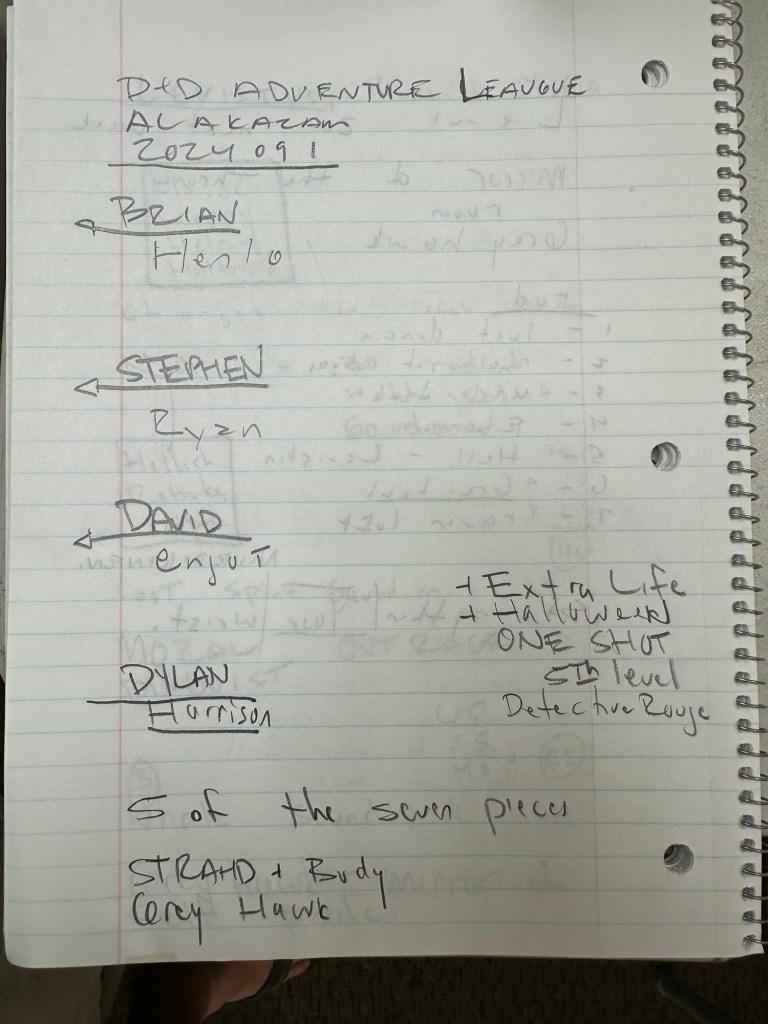 D+D ADVENTURE LEAUGUE
ALAKAZAM
2024 091
BRIAN
Henlo
STEPHEN
Ryan
DAVID
enjoT
+ Extra Life
+ Halloween
ONE SHOT
5th level
Detective Rouge
DYLAN
Harrison
5 of the seven pieces
STRAHD + Budy
Corey Hawk